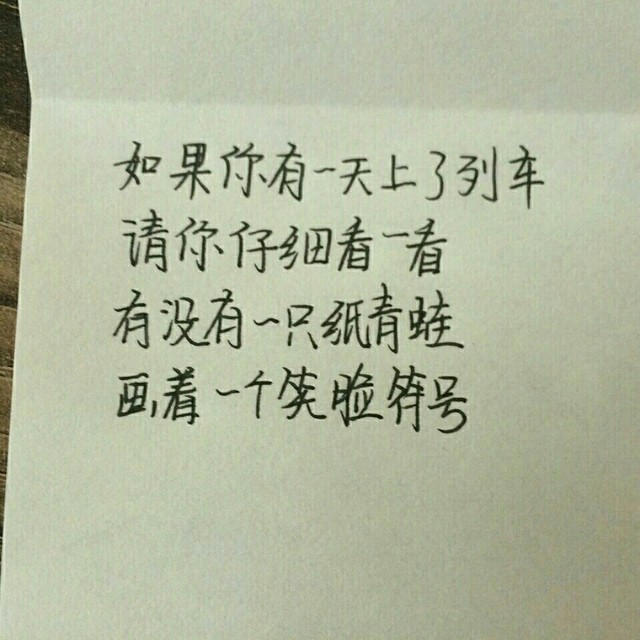 如果你有一天上了列车
请你仔细看一看
有没有一只纸青蛙
画着一个笑脸符号